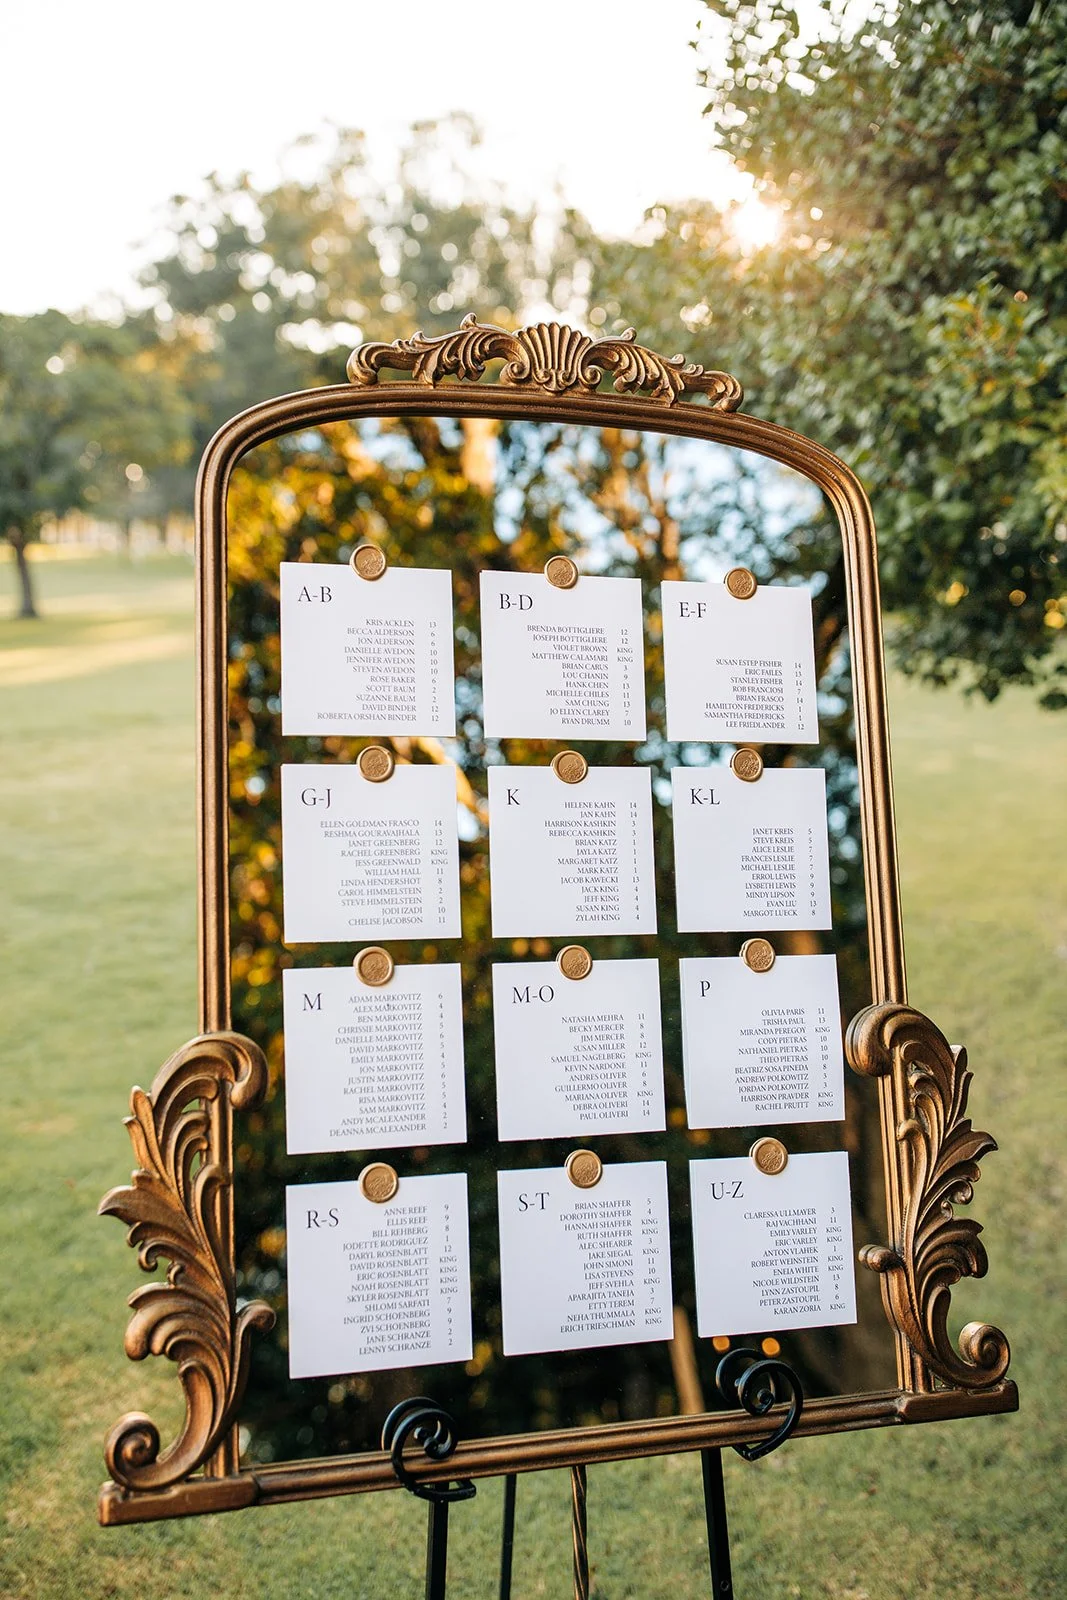 A-B
KRIS ACKLEN 13
BECCA ALDERSON 6
JON ALDERSON 6
DANIELLE AVEDON 10
JENNIFER AVEDON 10
STEVEN AVEDON 10
ROSE BAKER 6
SCOTT BAUM 2
SUZANNE BAUM 2
DAVID BINDER 12
ROBERTA ORSHAN BINDER 12
B-D
BRENDA BOTTIGLIERE 12
JOSEPH BOTTIGLIERE 12
VIOLET BROWN KING
MATTHEW CALAMARI KING
BRIAN CARUS 3
LOU CHANIN 9
HANK CHEN 13
MICHELLE CHILES 11
SAM CHUNG 13
JO ELLYN CLAREY 7
RYAN DRUMM 10
E-F
SUSAN ESTEP FISHER 14
ERIC FAILES 13
STANLEY FISHER 14
ROB FRANCIOSI 7
BRIAN FRASCO 14
HAMILTON FREDERICKS 1
SAMANTHA FREDERICKS 1
LEE FRIEDLANDER 12
G-J
ELLEN GOLDMAN FRASCO 14
RESHMA GOURAVAJHALA 13
JANET GREENBERG 12
RACHEL GREENBERG KING
JESS GREENWALD KING
WILLIAM HALL 11
LINDA HENDERSHOT 8
CAROL HIMMELSTEIN 2
STEVE HIMMELSTEIN 2
JODI IZADI 10
CHELISE JACOBSON 11
K
HELENE KAHN 14
JAN KAHN 14
HARRISON KASHKIN 3
REBECCA KASHKIN 3
BRIAN KATZ 1
JAYLA KATZ 1
MARGARET KATZ 1
MARK KATZ 1
JACOB KAWECKI 13
JACK KING 4
JEFF KING 4
SUSAN KING 4
ZYLAH KING 4
K-L
JANET KREIS 5
STEVE KREIS 5
ALICE LESLIE 7
FRANCES LESLIE 7
MICHAEL LESLIE 7
ERROL LEWIS 9
LYSBETH LEWIS 9
MINDY LIPSON 9
EVAN LIU 13
MARGOT LUECK 8
M
ADAM MARKOVITZ 6
ALEX MARKOVITZ 4
BEN MARKOVITZ 4
CHRISSIE MARKOVITZ 5
DANIELLE MARKOVITZ 6
DAVID MARKOVITZ 5
EMILY MARKOVITZ 4
JON MARKOVITZ 5
JUSTIN MARKOVITZ 6
RACHEL MARKOVITZ 5
RISA MARKOVITZ 5
SAM MARKOVITZ 4
ANDY MCALEXANDER 2
DEANNA MCALEXANDER 2
M-O
NATASHA MEHRA 11
BECKY MERCER 8
JIM MERCER 8
SUSAN MILLER 12
SAMUEL NAGELBERG KING
KEVIN NARDONE 11
ANDRES OLIVER 6
GUILLERMO OLIVER 8
MARIANA OLIVER KING
DEBRA OLIVERI 14
PAUL OLIVERI 14
P
OLIVIA PARIS 11
TRISHA PAUL 13
MIRANDA PEREGOY KING
CODY PIETRAS 10
NATHANIEL PIETRAS 10
THEO PIETRAS 10
BEATRIZ SOSA PINEDA 8
ANDREW POLKOWITZ 3
JORDAN POLKOWITZ 3
HARRISON PRAVDER KING
RACHEL PRUITT KING
R-S
ANNE REEF 9
ELLIS REEF 9
BILL REHBERG 8
JODETTE RODRIGUEZ 1
DARYL ROSENBLATT 12
DAVID ROSENBLATT KING
ERIC ROSENBLATT KING
NOAH ROSENBLATT KING
SKYLER ROSENBLATT KING
SHLOMI SARFATI 7
INGRID SCHOENBERG 9
ZVI SCHOENBERG 9
JANE SCHRANZE 2
LENNY SCHRANZE 2
S-T
BRIAN SHAFFER 5
DOROTHY SHAFFER 4
HANNAH SHAFFER KING
RUTH SHAFFER KING
ALEC SHEARER 3
JAKE SIEGAL KING
JOHN SIMONI 11
LISA STEVENS 10
JEFF SVEHLA KING
APARAJITA TANEJA 3
ETTY TEREM 7
NEHA THUMMALA KING
ERICH TRIESCHMAN KING
U-Z
CLARESSA ULLMAYER 3
RAJ VACHHANI 11
EMILY VARLEY KING
ERIC VARLEY KING
ANTON VLAHEK 1
ROBERT WEINSTEIN KING
ENEIA WHITE KING
NICOLE WILDSTEIN 13
LYNN ZASTOUPIL 8
PETER ZASTOUPIL 6
KARAN ZORIA KING